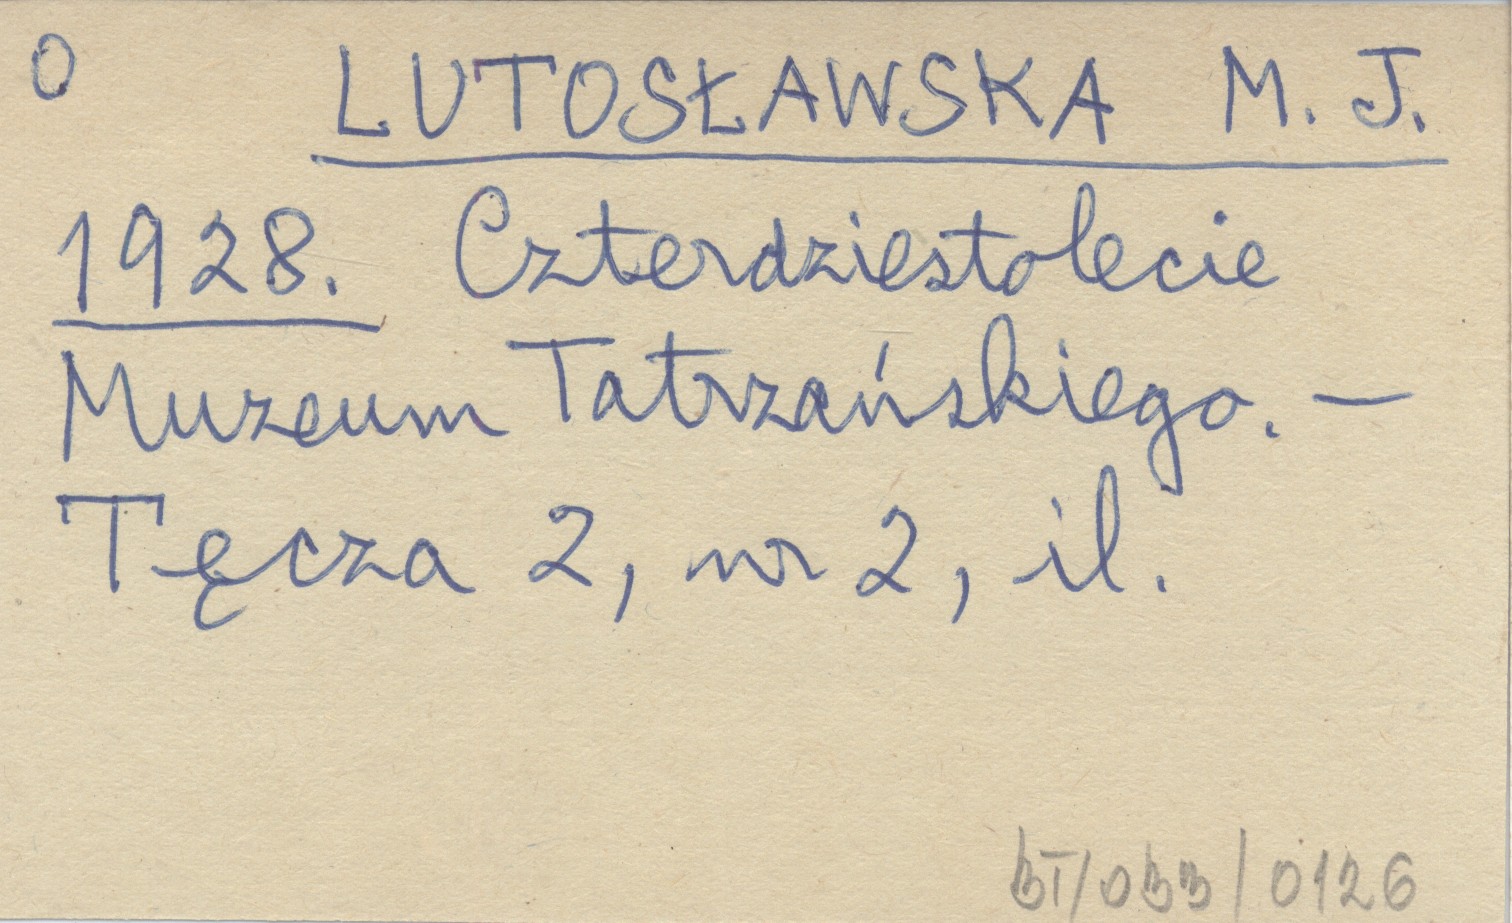 O LUTOSŁAWSKA M. J.
1928. Czterdziestolecie
Muzeum Tatrzańskiego. —
Tęcza 2, nr 2, il.
BT/033/0126